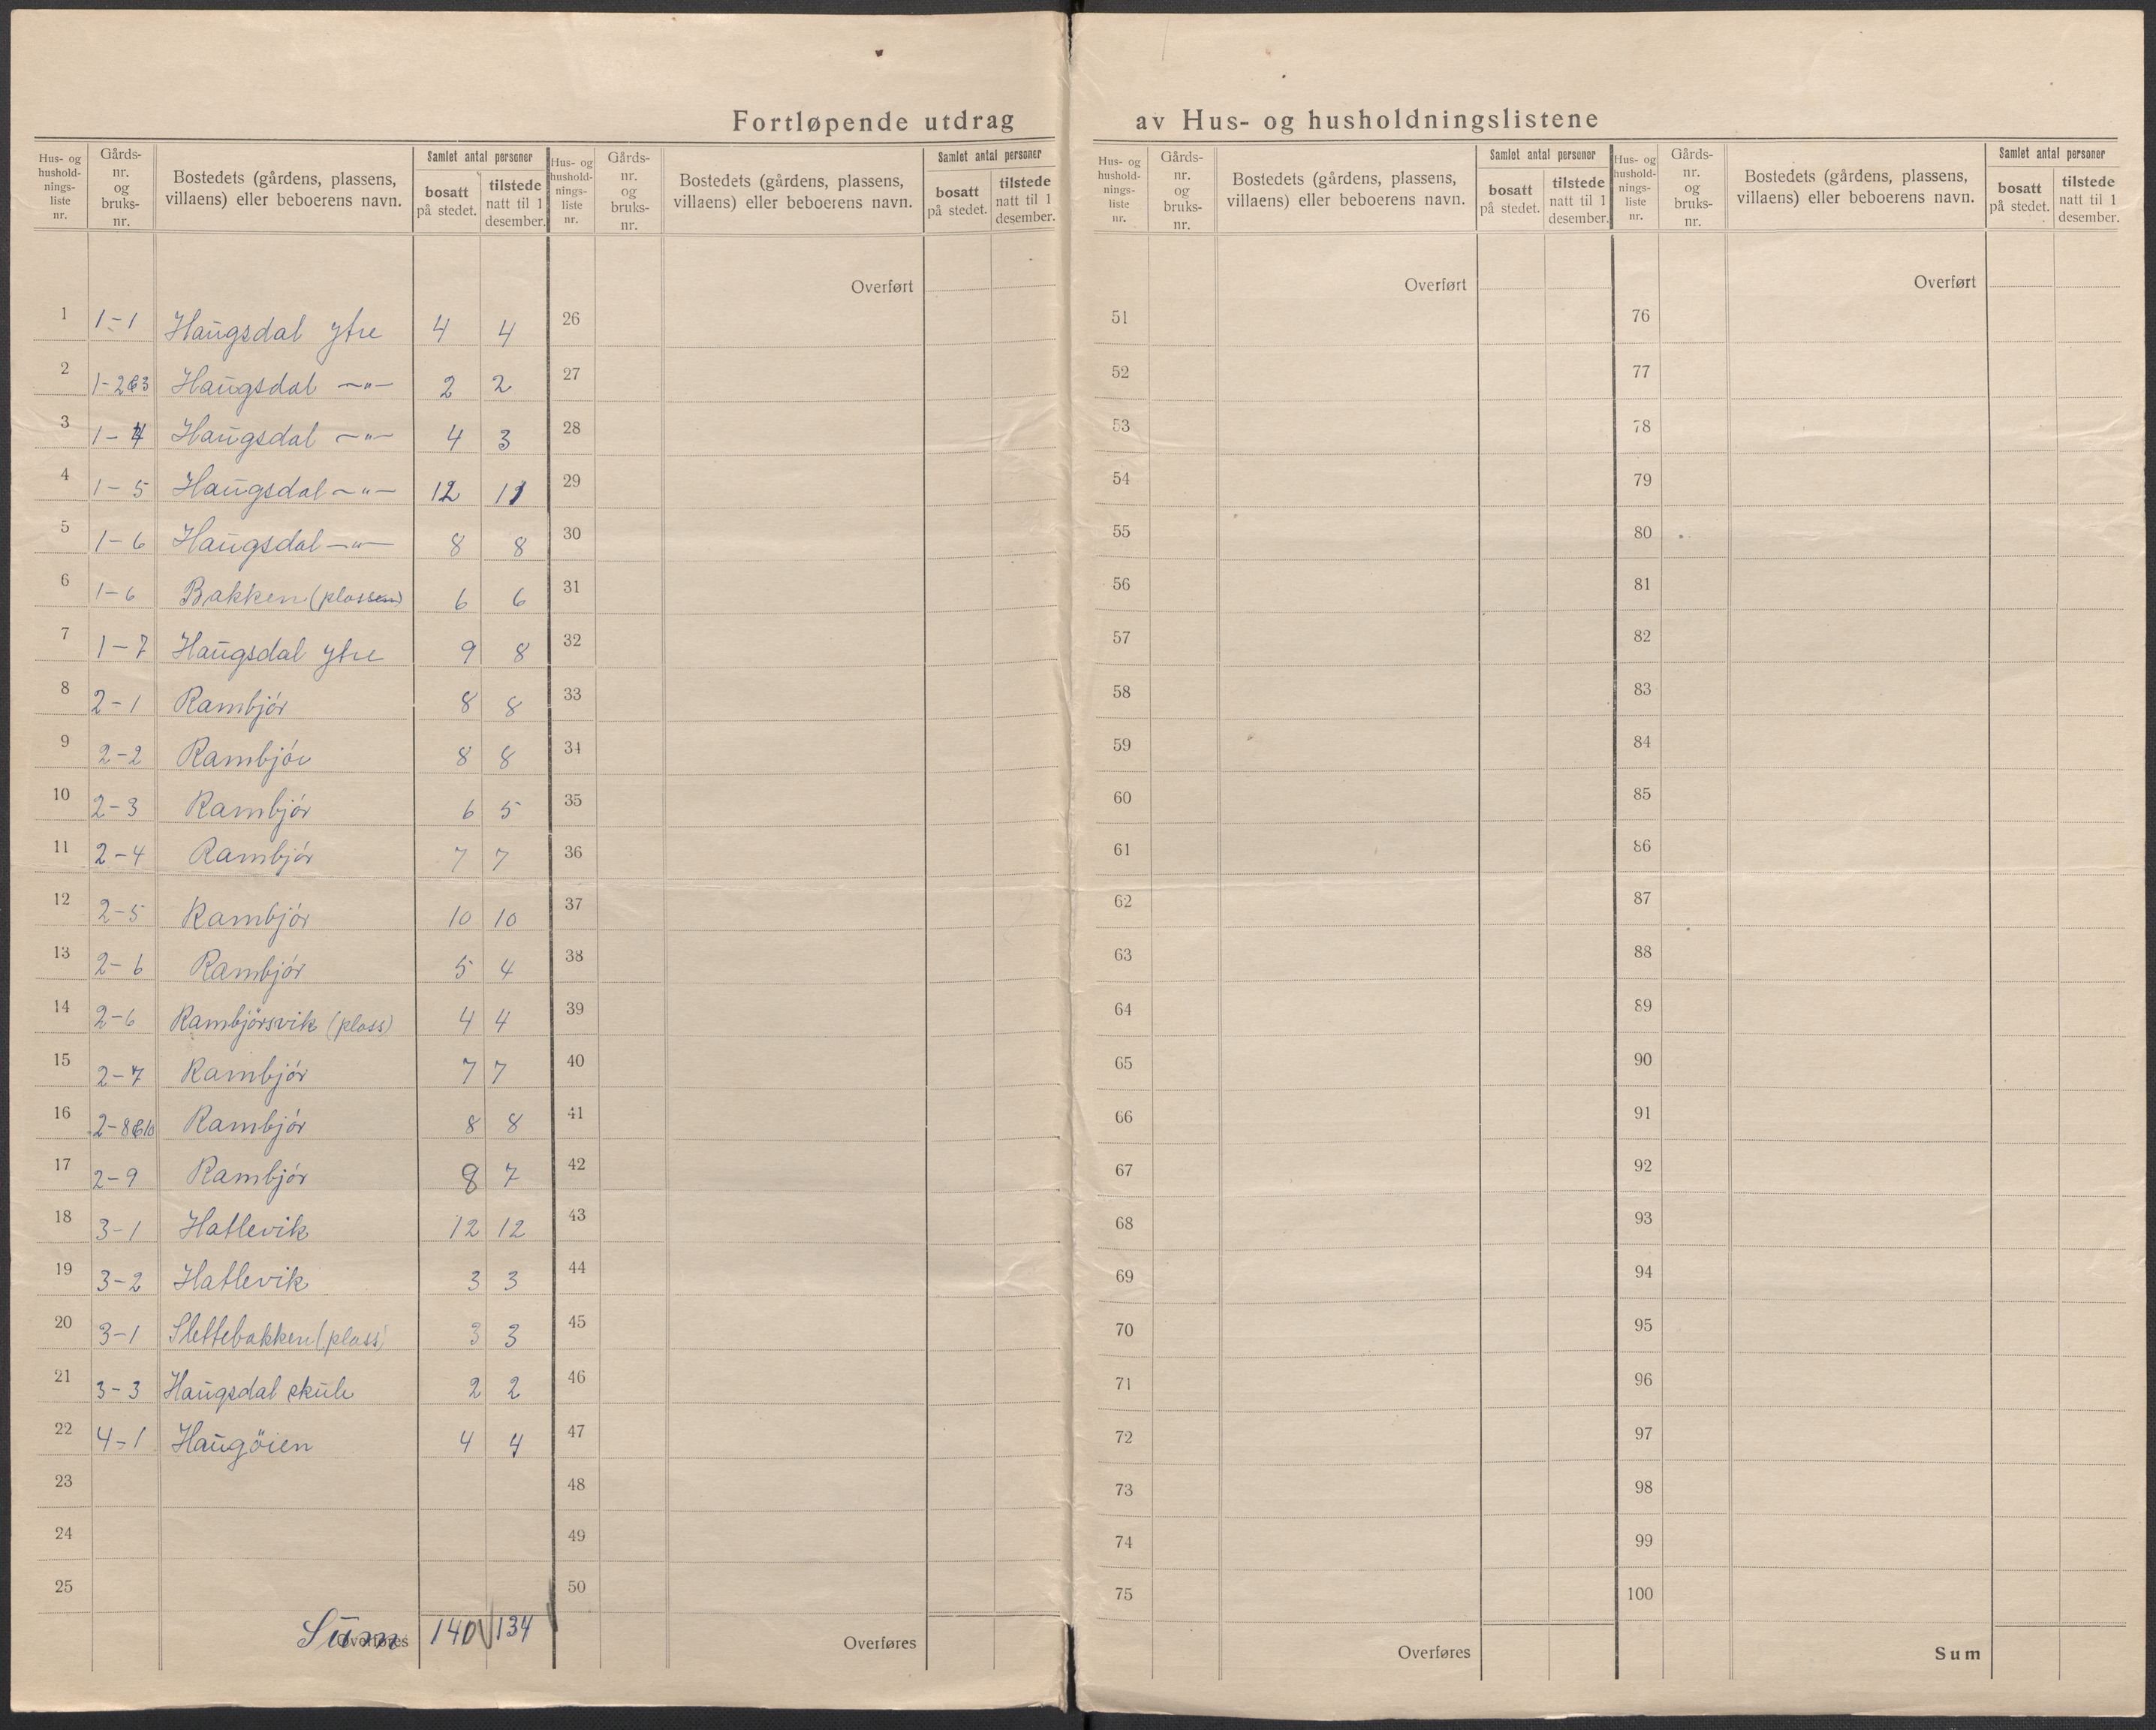 Fortløpende utdrag av Hus- og husholdningslistene
Hus- og hushold- nings- liste nr. | Gårds- nr. og bruks- nr. | Bostedets (gårdens, plassens, villaens) eller beboerens navn. | Samlet antal personer | bosatt på stedet. | tilstede natt til 1 desember.
Hus- og hushold- nings- liste nr. | Gårds- nr. og bruks- nr. | Bostedets (gårdens, plassens, villaens) eller beboerens navn. | Samlet antal personer | bosatt på stedet. | tilstede natt til 1 desember.
Hus- og hushold- nings- liste nr. | Gårds- nr. og bruks- nr. | Bostedets (gårdens, plassens, villaens) eller beboerens navn. | Samlet antal personer | bosatt på stedet. | tilstede natt til 1 desember.
Hus- og hushold- nings- liste nr. | Gårds- nr. og bruks- nr. | Bostedets (gårdens, plassens, villaens) eller beboerens navn. | Samlet antal personer | bosatt på stedet. | tilstede natt til 1 desember.
Overført Overført Overført
1 1-1 Haugsdal ytre 4 4 26 51 76
2 1-2&3 Haugsdal -"- 2 2 27 52 77
3 1-4 Haugsdal -"- 4 3 28 53 78
4 1-5 Haugsdal -"- 12 11 29 54 79
5 1-6 Haugsdal -"- 8 8 30 55 80
6 1-6 Bakken (plassen) 6 6 31 56 81
7 1-7 Haugsdal ytre 9 8 32 57 82
8 2-1 Rambjór 8 8 33 58 83
9 2-2 Rambjór 8 8 34 59 84
10 2-3 Rambjór 6 5 35 60 85
11 2-4 Rambjór 7 7 36 61 86
12 2-5 Rambjór 10 10 37 62 87
13 2-6 Rambjór 5 4 38 63 88
14 2-6 Rambjörsvik (plass) 4 4 39 64 89
15 2-7 Rambjór 7 7 40 65 90
16 2-8&10 Rambjór 8 8 41 66 91
17 2-9 Rambjór 8 7 42 67 92
18 3-1 Hatlevik 12 12 43 68 93
19 3-2 Hatlevik 3 3 44 69 94
20 3-1 Slettebakken (plass) 3 3 45 70 95
21 3-3 Haugsdal skule 2 2 46 71 96
22 4-1 Haugöien 4 4 47 72 97
23 48 73 98
24 49 74 99
25 50 75 100
Overføres Sum 140 134 Overføres Overføres Sum